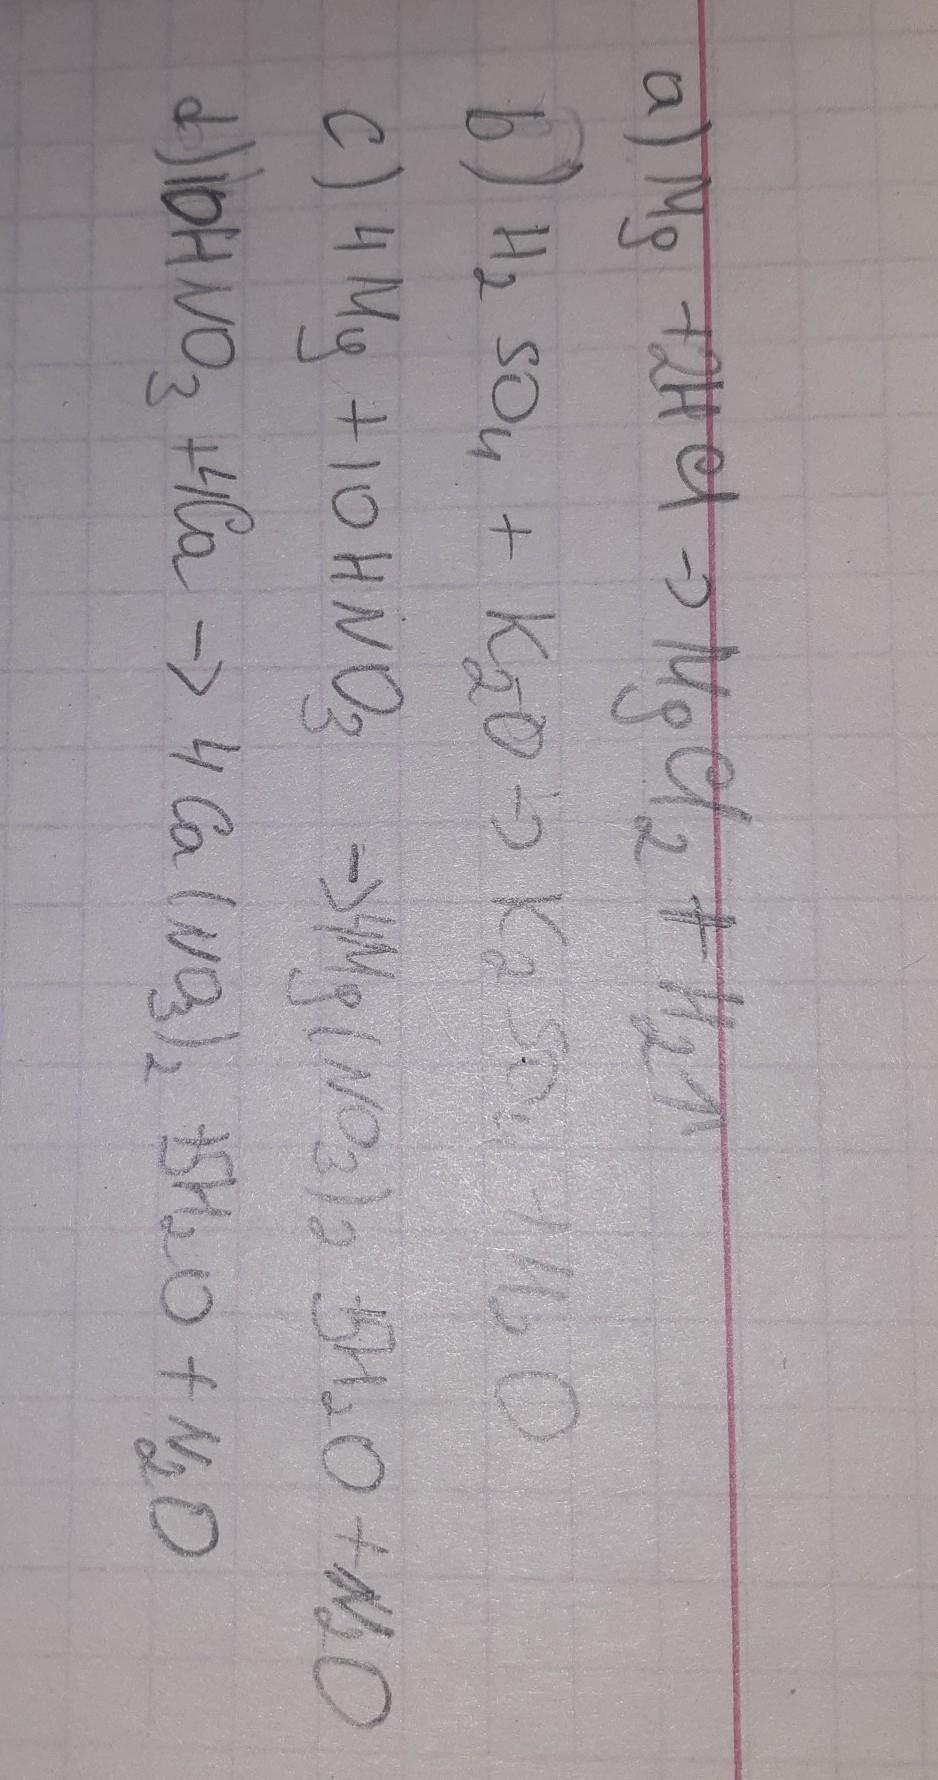 a) Mg + 2HCl → MgCl₂ + H₂↑
b) H₂SO₄ + K₂O → K₂SO₄ + H₂O
c) 4Mg + 10HNO₃ → 4Mg(NO₃)₂ + 5H₂O + N₂O
d) 10HNO₃ + 4Ca → 4Ca(NO₃)₂ + 5H₂O + N₂O